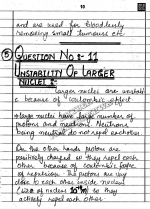 10
and are used for bloodlessly
removing small tumours etc
⑤ QUESTION No 8-11
INSTABILITY OF LARGER
NUCLEI:-
larger nuclei are unstabl
e because of "coulomb's effect
→ large nuclei have large number of
protons and neutrons. Neutrons
being neutral do not repel eachother
On the other hands protons are
positively charged so they repel each
other because of coulomb's force
of repulsion. The protons are very
close to each other inside nucleus
(size of nucleus so they
actively repel each other